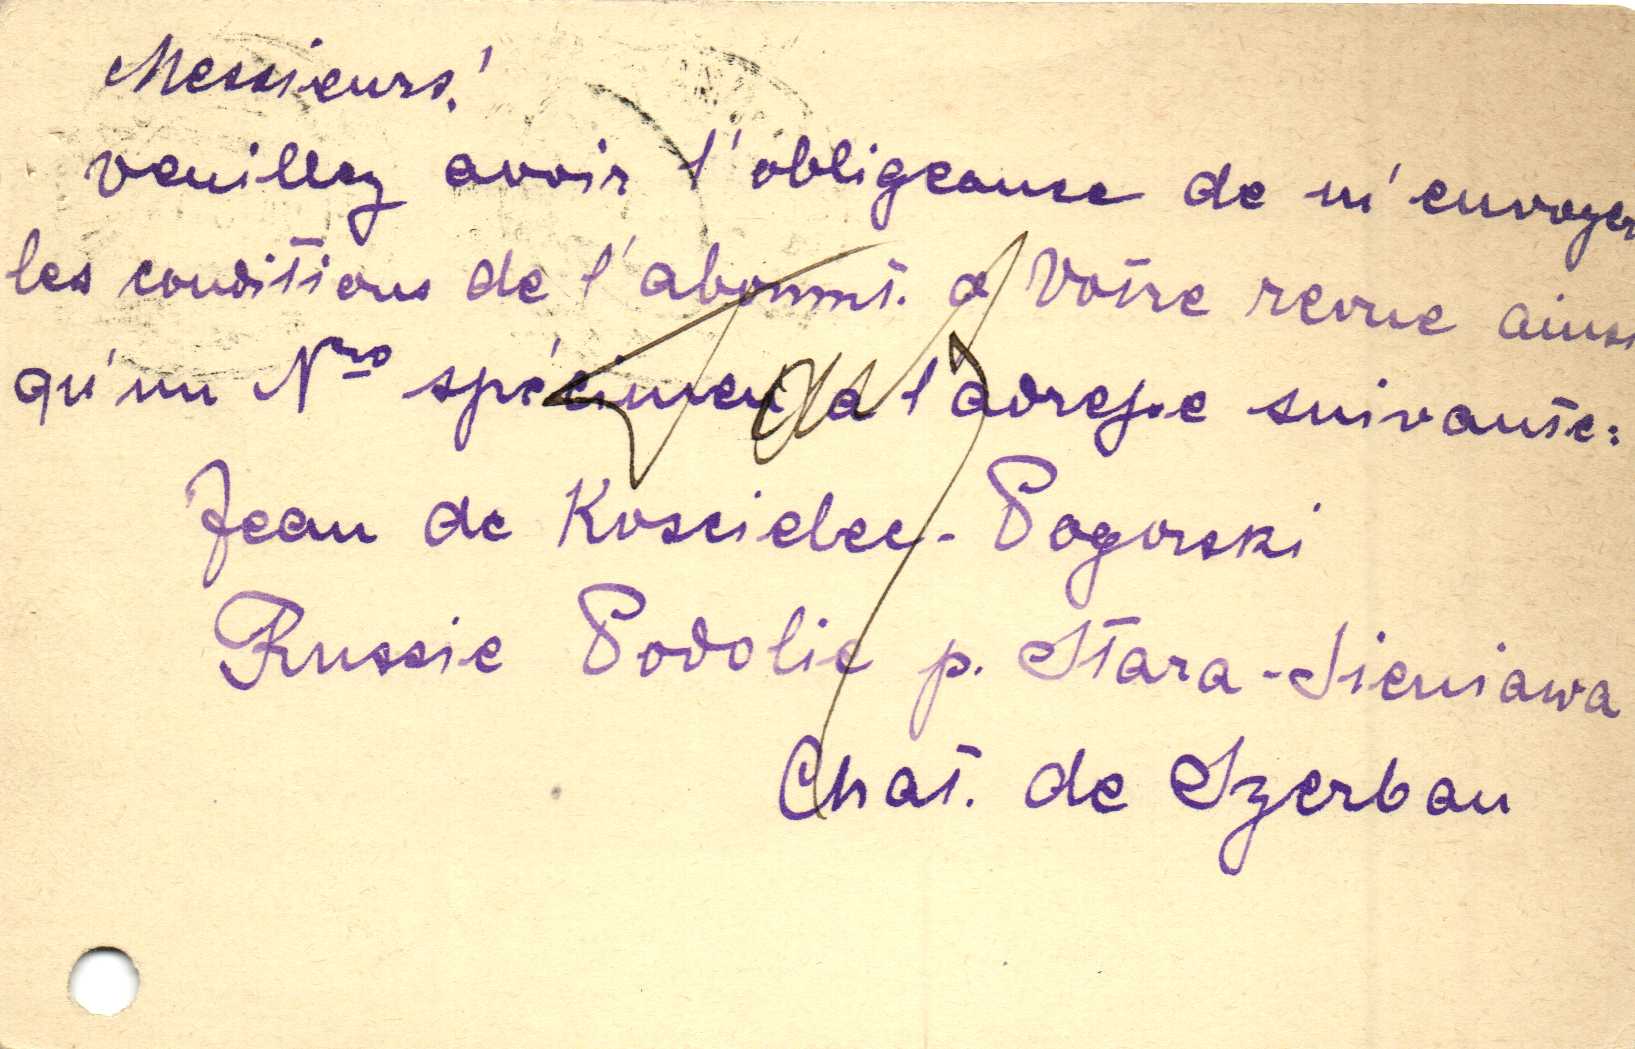 Messieurs!
veuillez avoir l'obligeance de m'envoyer
les conditions de l'abonmt. a Votre revue ainsi
qu'un Nro spécimen a l'adresse suivante:
Jean de Koscielec-Pogorski
Russie Podolie p. Stara-Sieniawa
Chat. de Szerbau